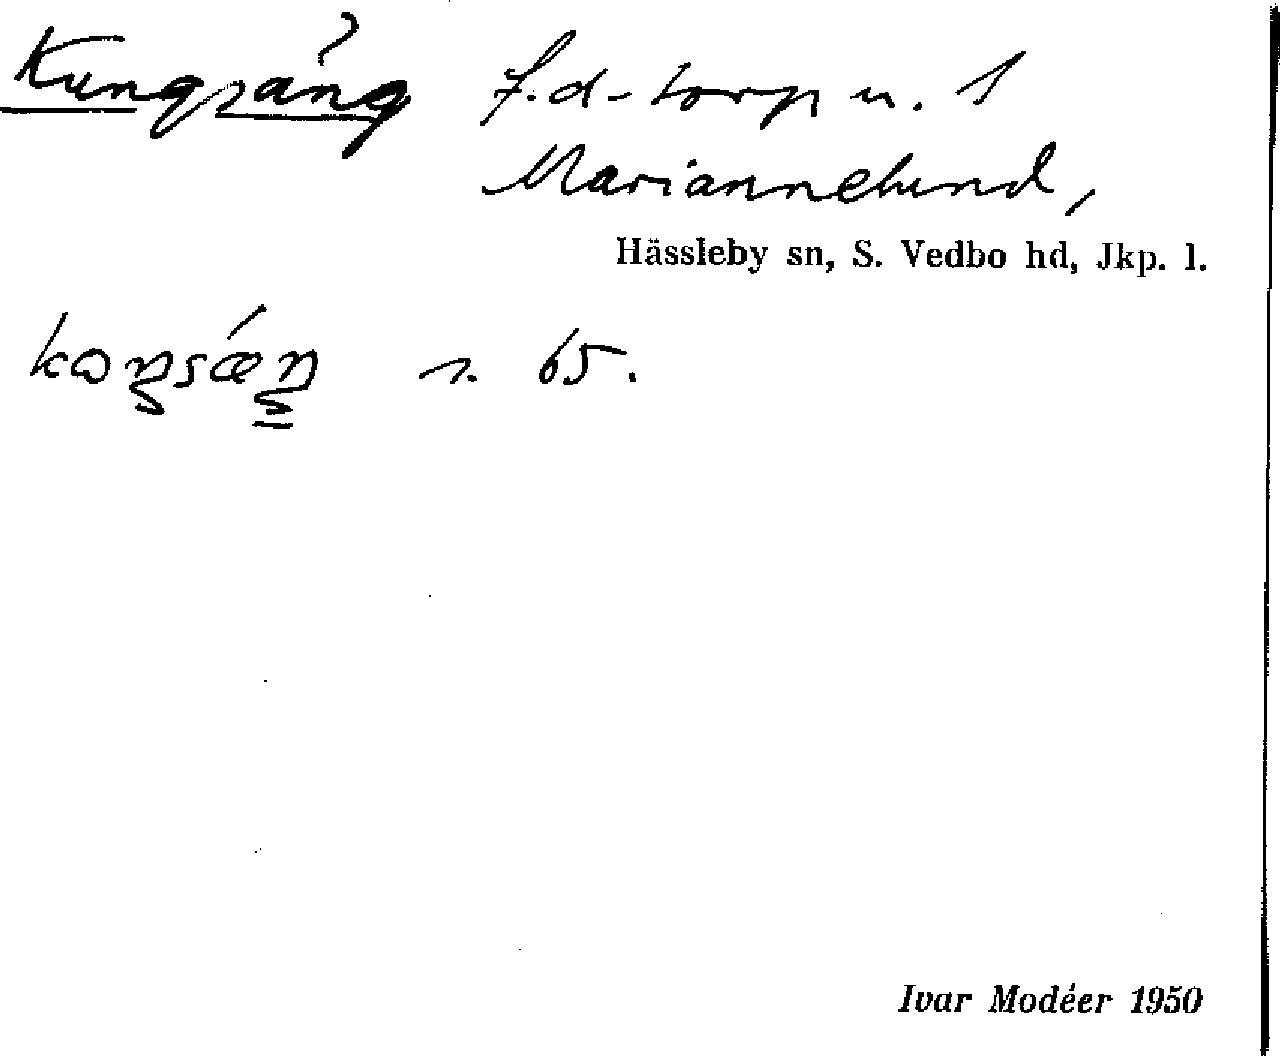 Kungsäng f.d. torp u. 1
Mariannelund,
Hässleby sn, S. Vedbo hd, Jkp. l.
s. 65.
Ivar Modéer 1950